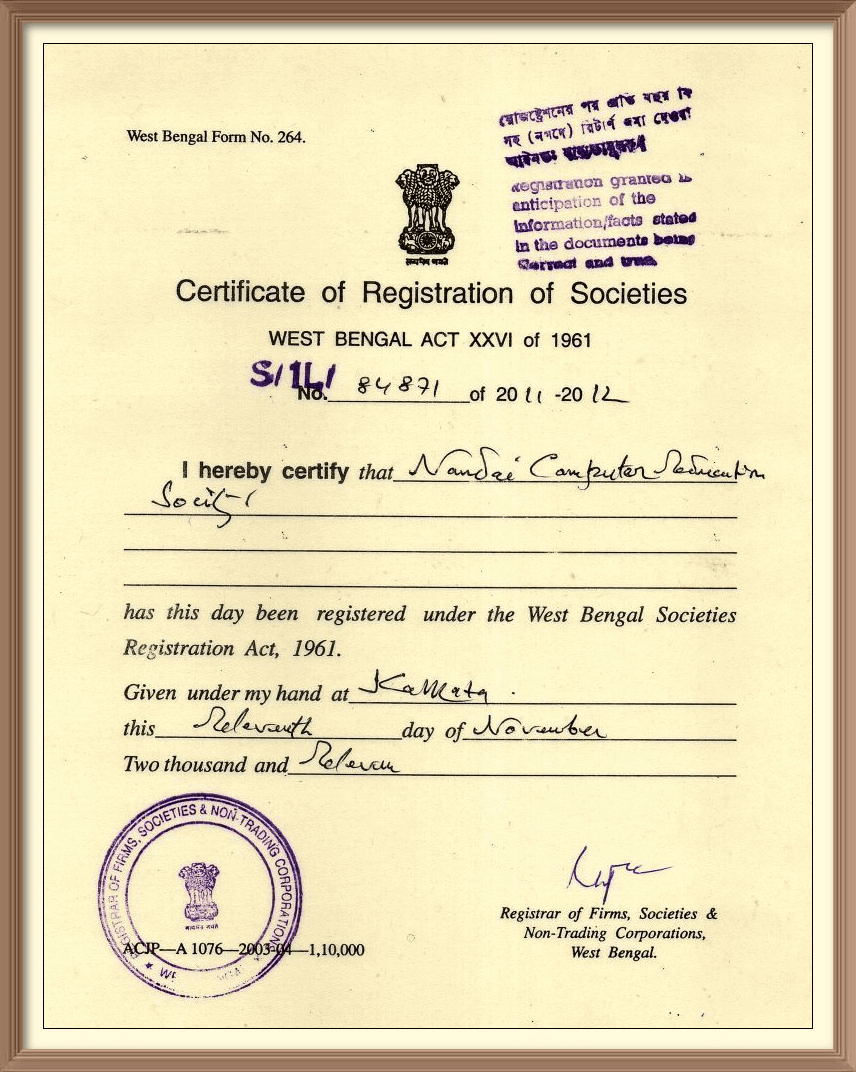 West Bengal Form No. 264.
সহ (নগদে) রিটার্ণ জমা দেওয়া
Registration granted in
anticipation of the
information/facts stated
in the documents being
Correct and true.
सत्यमेव जयते
Certificate of Registration of Societies
WEST BENGAL ACT XXVI of 1961
S/1L/
No. 84871 of 2011-2012
I hereby certify that Nandai Computer Education
Society
has this day been registered under the West Bengal Societies
Registration Act, 1961.
Given under my hand at Kolkata.
this Eleventh day of November
Two thousand and Eleven
REGISTRAR OF FIRMS, SOCIETIES & NON-TRADING CORPORATION
सत्यमेव जयते
ACJP—A 1076—2003-04—1,10,000
Registrar of Firms, Societies &
Non-Trading Corporations,
West Bengal.